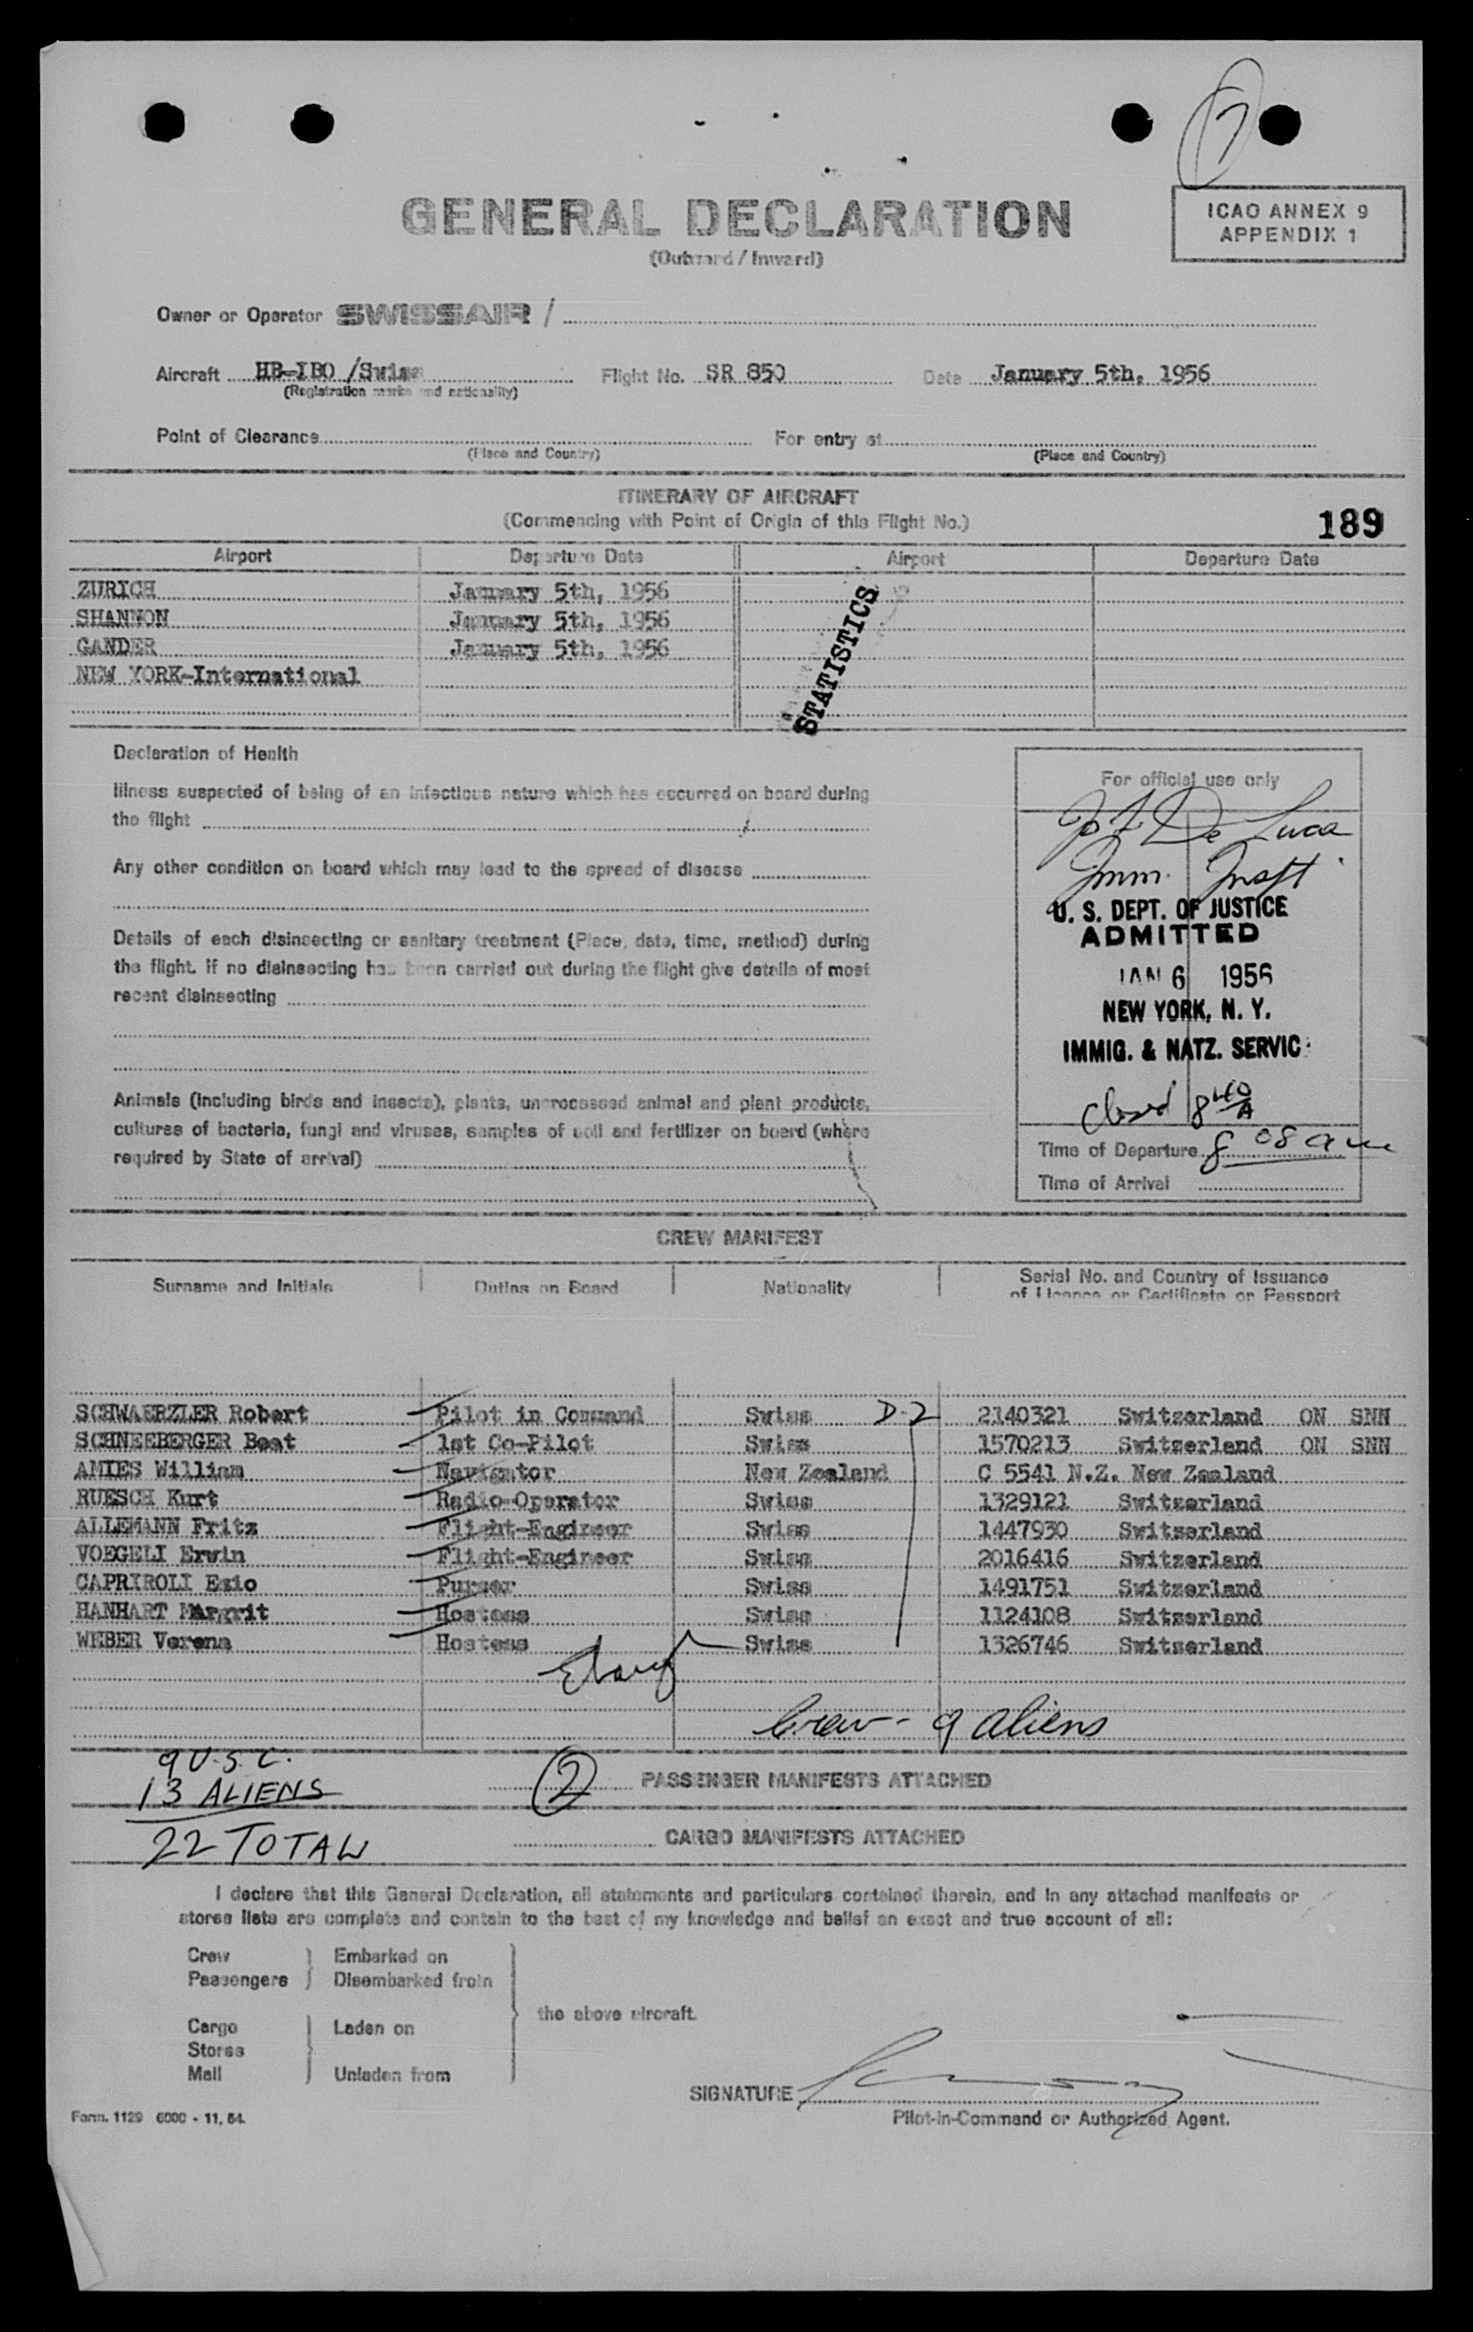 7
GENERAL DECLARATION
(Outward / Inward)
ICAO ANNEX 9
APPENDIX 1
Owner or Operator SWISSAIR /
Aircraft HB-IBO /Swiss Flight No. SR 850 Date January 5th, 1956
(Registration marks and nationality)
Point of Clearance For entry at
(Place and Country) (Place and Country)
ITINERARY OF AIRCRAFT
(Commencing with Point of Origin of this Flight No.)
189
Airport Departure Date Airport Departure Date
ZURICH January 5th, 1956
SHANNON January 5th, 1956
GANDER January 5th, 1956
NEW YORK-International
STATISTICS
Declaration of Health
Illness suspected of being of an infectious nature which has occurred on board during
the flight
Any other condition on board which may lead to the spread of disease
Details of each disinsecting or sanitary treatment (Place, date, time, method) during
the flight. If no disinsecting has been carried out during the flight give details of most
recent disinsecting
Animals (including birds and insects), plants, unprocessed animal and plant products,
cultures of bacteria, fungi and viruses, samples of soil and fertilizer on board (where
required by State of arrival)
For official use only
De Luca
Imm. Inspt.
U. S. DEPT. OF JUSTICE
ADMITTED
JAN 6 1956
NEW YORK, N. Y.
IMMIG. & NATZ. SERVIC
Closed 8 40 A
Time of Departure 8 08 am
Time of Arrival
CREW MANIFEST
Surname and Initials Duties on Board Nationality Serial No. and Country of Issuance
of Licence or Certificate or Passport
SCHWAERZLER Robert Pilot in Command Swiss D-2 2140321 Switzerland ON SNN
SCHNEEBERGER Beat 1st Co-Pilot Swiss 1570213 Switzerland ON SNN
AMIES William Navigator New Zealand C 5541 N.Z. New Zealand
RUESCH Kurt Radio-Operator Swiss 1329121 Switzerland
ALLEMANN Fritz Flight-Engineer Swiss 1447930 Switzerland
VOEGELI Erwin Flight-Engineer Swiss 2016416 Switzerland
CAPRIROLI Ezio Purser Swiss 1491751 Switzerland
HANHART Margrit Hostess Swiss 1124108 Switzerland
WEBER Verena Hostess Swiss 1326746 Switzerland
Crew - 9 aliens
9 U.S.C.
13 ALIENS
22 TOTAL
2 PASSENGER MANIFESTS ATTACHED
CARGO MANIFESTS ATTACHED
I declare that this General Declaration, all statements and particulars contained therein, and in any attached manifests or
stores lists are complete and contain to the best of my knowledge and belief an exact and true account of all:
Crew Embarked on
Passengers Disembarked from
the above aircraft.
Cargo Laden on
Stores
Mail Unladen from
SIGNATURE
Pilot-in-Command or Authorized Agent.
Form. 1129 6000 - 11, 54.